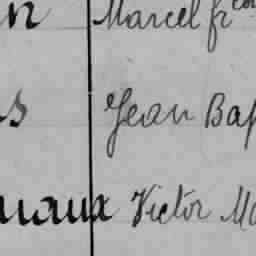 n Marcel fr
s Jean Bap
uaux Victor Ma